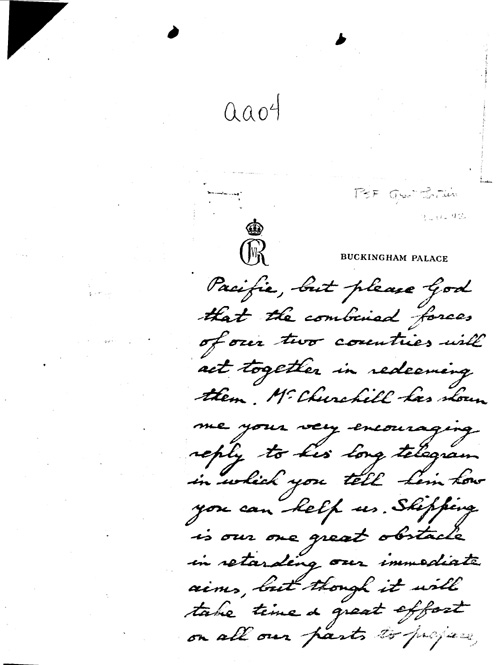 aa04
PSF Great Britain
GVIR
BUCKINGHAM PALACE
Pacific, but please God
that the combined forces
of our two countries will
act together in redeeming
them. Mr Churchill has shown
me your very encouraging
reply to his long telegram
in which you tell him how
you can help us. Shipping
is our one great obstacle
in retarding our immediate
aims, but though it will
take time & great effort
on all our parts to prepare,